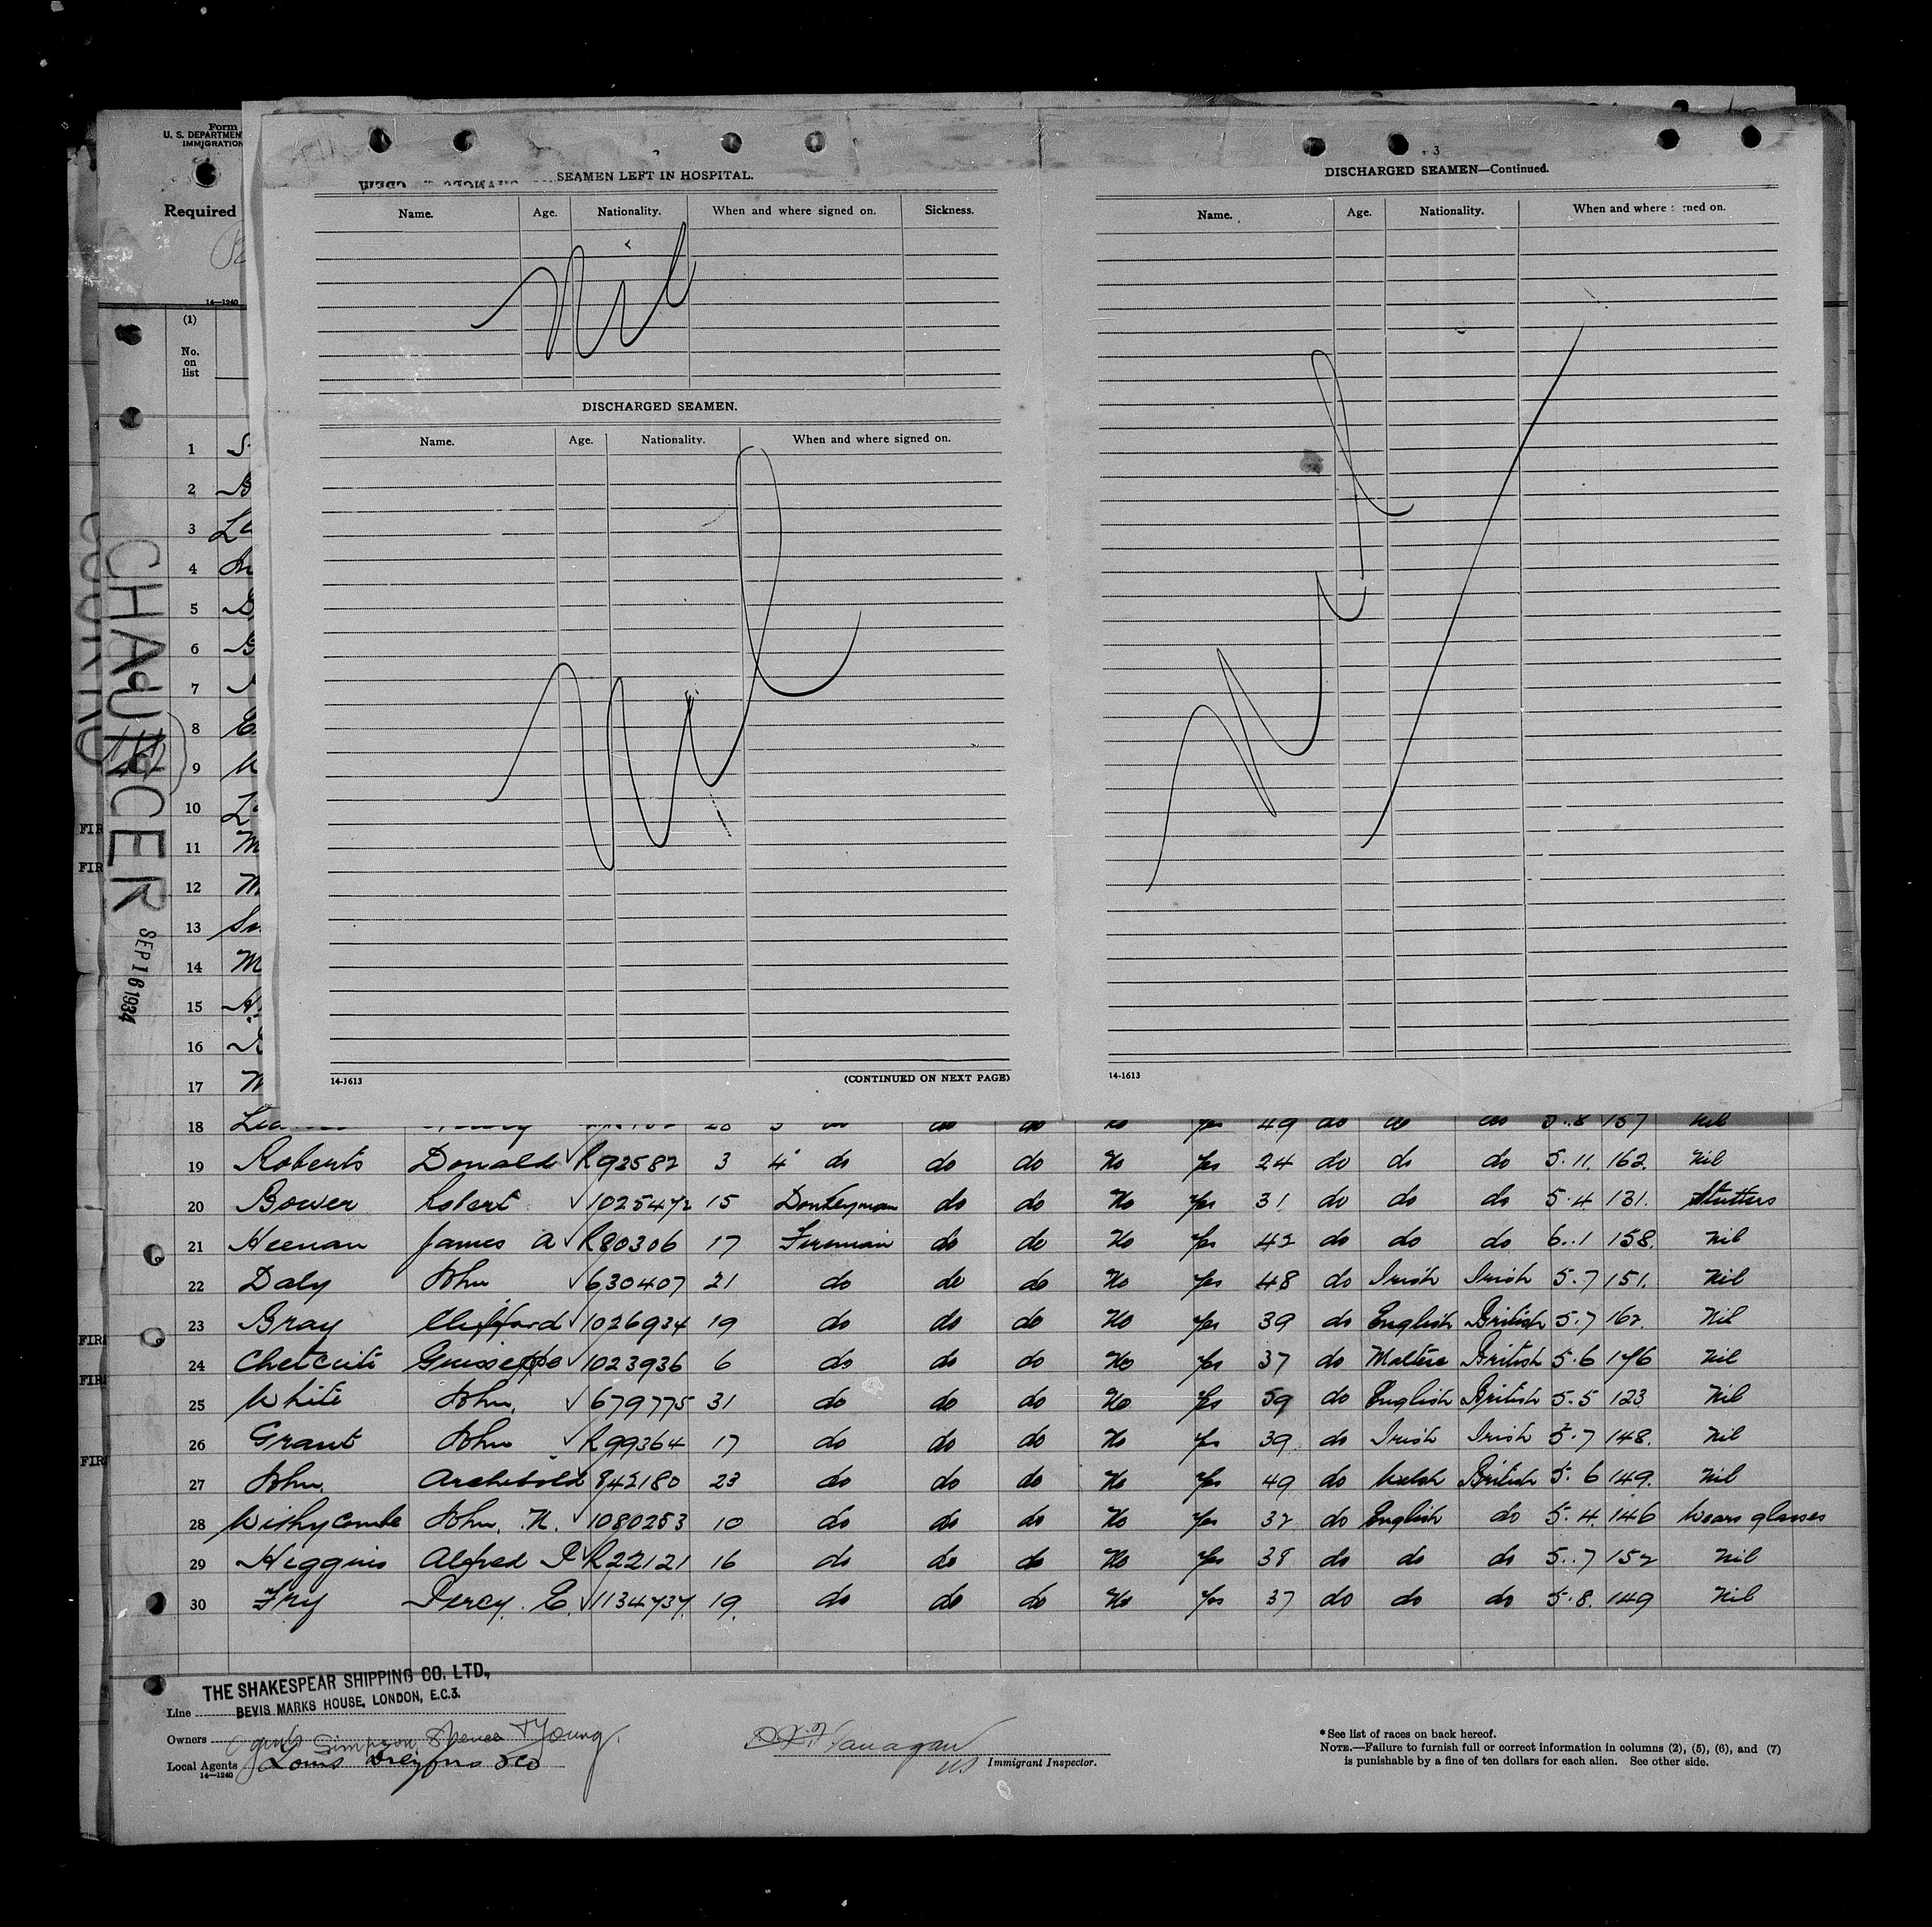 Form
U. S. DEPARTMEN
IMMIGRATION
Required
14—1240
(1)
No.
on
list
CHAUNCER
SEP 16 1934
SEAMEN LEFT IN HOSPITAL.
Name. Age. Nationality. When and where signed on. Sickness.
Nil
DISCHARGED SEAMEN.
Name. Age. Nationality. When and where signed on.
Nil
14-1613 (CONTINUED ON NEXT PAGE)
3
DISCHARGED SEAMEN—Continued.
Name. Age. Nationality. When and where signed on.
Nil
14-1613
1
2
3
4
5
6
7
8
9
10
11
12
13
14
15
16
17
18 49 do do do 5.8 157 Nil
19 Roberts Donald R92582 3 4 do do do No Yes 24 do do do 5.11. 162 Nil
20 Bower Robert 1025472 15 Donkeyman do do No Yes 31 do do do 5.4 131. Stutters
21 Heenan James A R80306 17 Fireman do do No Yes 42 do do do 6.1 158. Nil
22 Daly John 630407 21 do do do No Yes 48 do Irish Irish 5.7 151. Nil
23 Bray Clifford 1026934 19 do do do No Yes 39 do English British 5.7 162. Nil
24 Chetcuti Guiseppe 1023936 6 do do do No Yes 37 do Maltese British 5.6 176 Nil
25 White John. 679775 31 do do do No Yes 59 do English British 5.5 123 Nil
26 Grant John R99364 17 do do do No Yes 39 do Irish Irish 5.7 148. Nil
27 John. Archibold 842180 23 do do do No Yes 49 do Welsh British 5.6 149. Nil
28 Withycombe John. N. 1080253 10 do do do No Yes 32 do English do 5.4. 146 Wears glasses
29 Higgins Alfred P R22121 16 do do do No Yes 38 do do do 5.7 152 Nil
30 Fry Percy. E. 1134737. 19. do do do No Yes 37 do do do 5.8. 149 Nil
THE SHAKESPEAR SHIPPING CO. LTD.,
Line BEVIS MARKS HOUSE, LONDON, E.C.3.
Owners Agents Simpson, Spence & Young.
Local Agents Louis Dreyfus & Co
14—1240
Flanagan
Immigrant Inspector.
*See list of races on back hereof.
NOTE.—Failure to furnish full or correct information in columns (2), (5), (6), and (7)
is punishable by a fine of ten dollars for each alien. See other side.